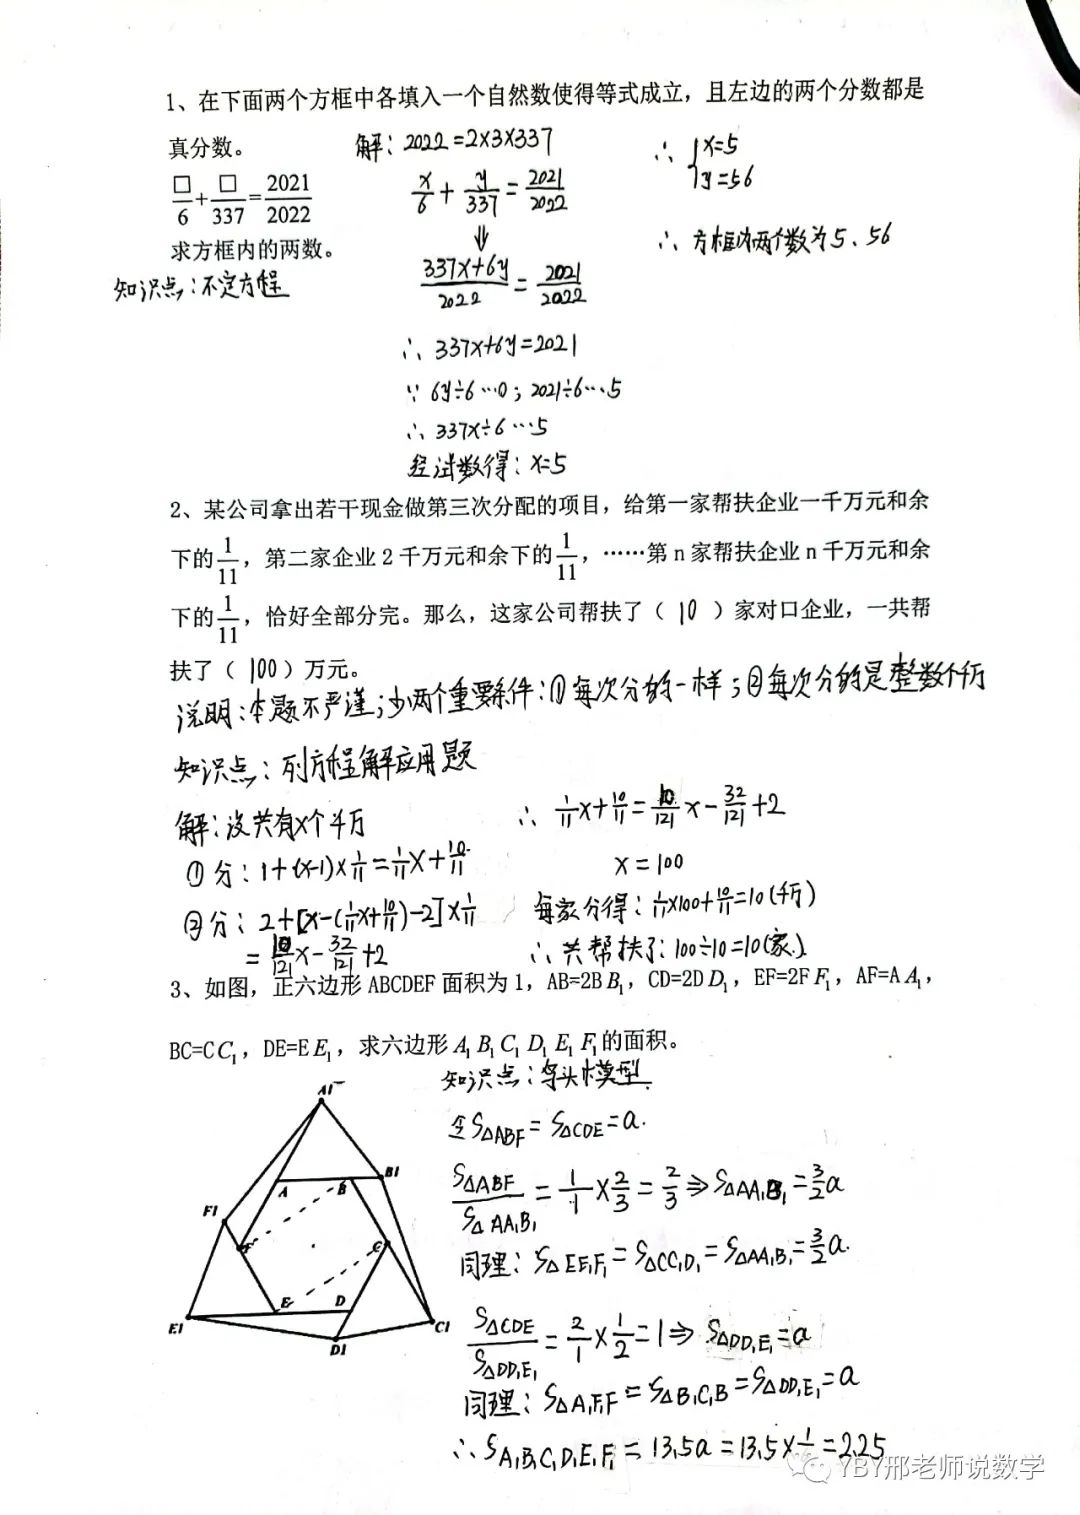 1、在下面两个方框中各填入一个自然数使得等式成立，且左边的两个分数都是
真分数。
□/6+□/337=2021/2022
求方框内的两数。
知识点：不定方程
解：2022=2×3×337
x/6+y/337=2021/2022
⇓
(337x+6y)/2022=2021/2022
∴ 337x+6y=2021
∵ 6y÷6…0；2021÷6…5
∴ 337x÷6…5
经试数得：x=5
∴ {x=5
y=56
∴ 方框内两个数为5、56
2、某公司拿出若干现金做第三次分配的项目，给第一家帮扶企业一千万元和余
下的1/11，第二家企业2千万元和余下的1/11，……第n家帮扶企业n千万元和余
下的1/11，恰好全部分完。那么，这家公司帮扶了（ 10 ）家对口企业，一共帮
扶了（ 100 ）万元。
说明：本题不严谨；少两个重要条件：①每次分的一样；②每次分的是整数个千万
知识点：列方程解应用题
解：设共有x个千万
①分：1+(x-1)×1/11=1/11x+10/11
②分：2+[x-(1/11x+10/11)-2]×1/11
=10/121x-32/121+2
∴ 1/11x+10/11=10/121x-32/121+2
x=100
每家分得：1/11×100+10/11=10(千万)
∴ 共帮扶了：100÷10=10(家)
3、如图，正六边形ABCDEF面积为1，AB=2BB₁，CD=2DD₁，EF=2FF₁，AF=AA₁，
BC=CC₁，DE=EE₁，求六边形A₁B₁C₁D₁E₁F₁的面积。
A1
A
B
B1
F1
F
C
E
D
E1
D1
C1
知识点：鸟头模型
令S△ABF=S△CDE=a.
S△ABF/S△AA₁B₁=1/1×2/3=2/3⇒S△AA₁B₁=3/2a
同理：S△EE₁F₁=S△CC₁D₁=S△AA₁B₁=3/2a.
S△CDE/S△DD₁E₁=2/1×1/2=1⇒S△DD₁E₁=a
同理：S△A₁F₁F=S△B₁C₁B=S△DD₁E₁=a
∴S A₁B₁C₁D₁E₁F₁=13.5a=13.5×1/6=2.25
YBY邢老师说数学